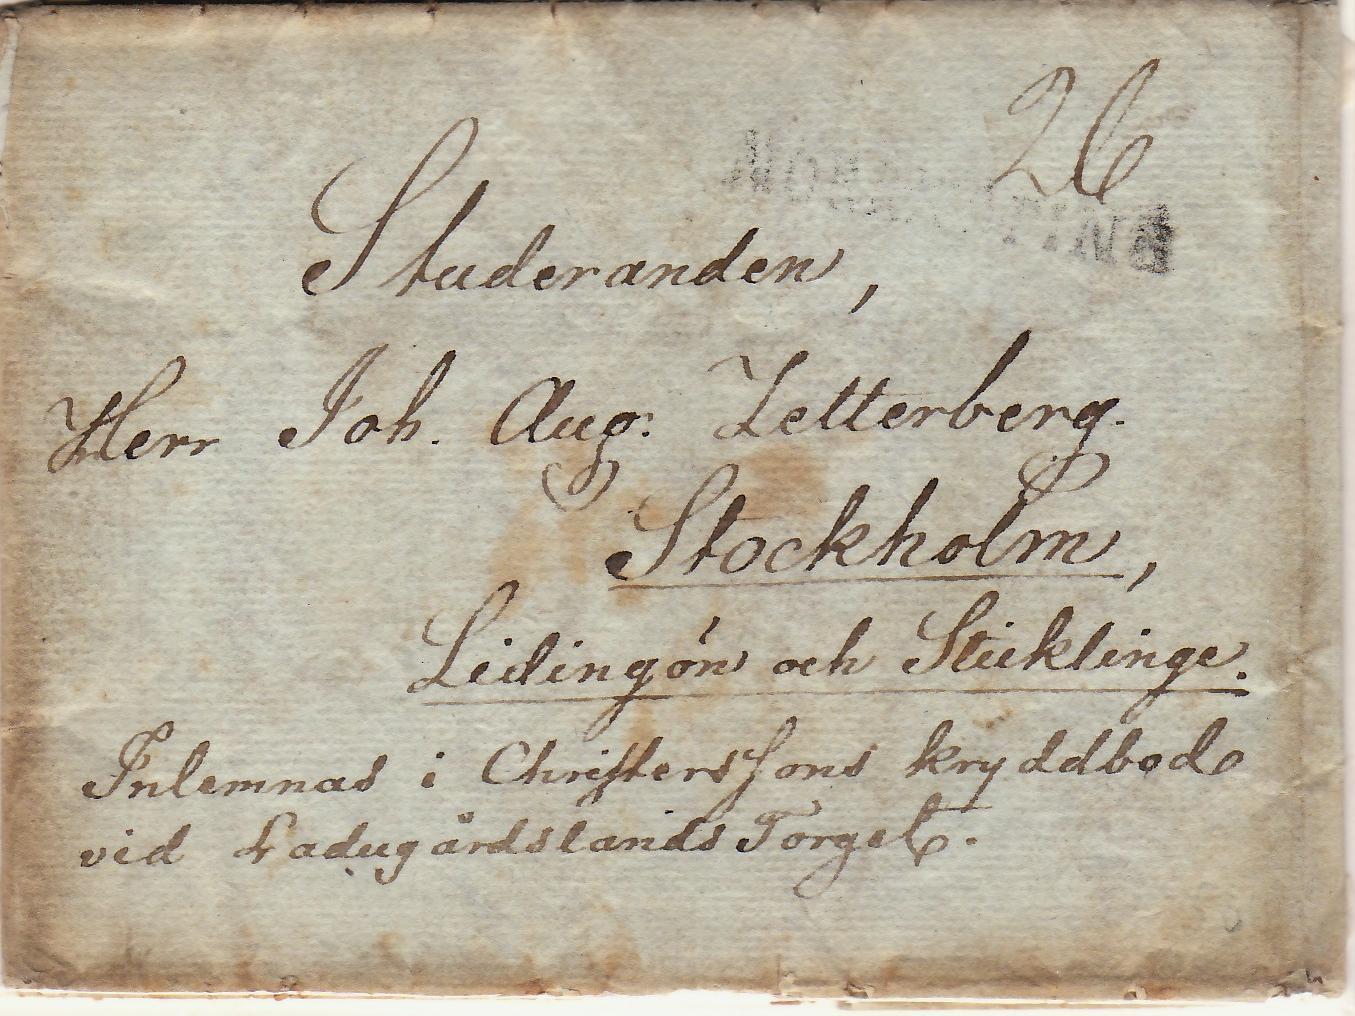 26
Studeranden,
Herr Joh. Aug: Zetterberg.
Stockholm,
Lidingön och Sticklinge.
Inlemnas i Christerssons kryddbod
vid Ladugårdslands Torget.